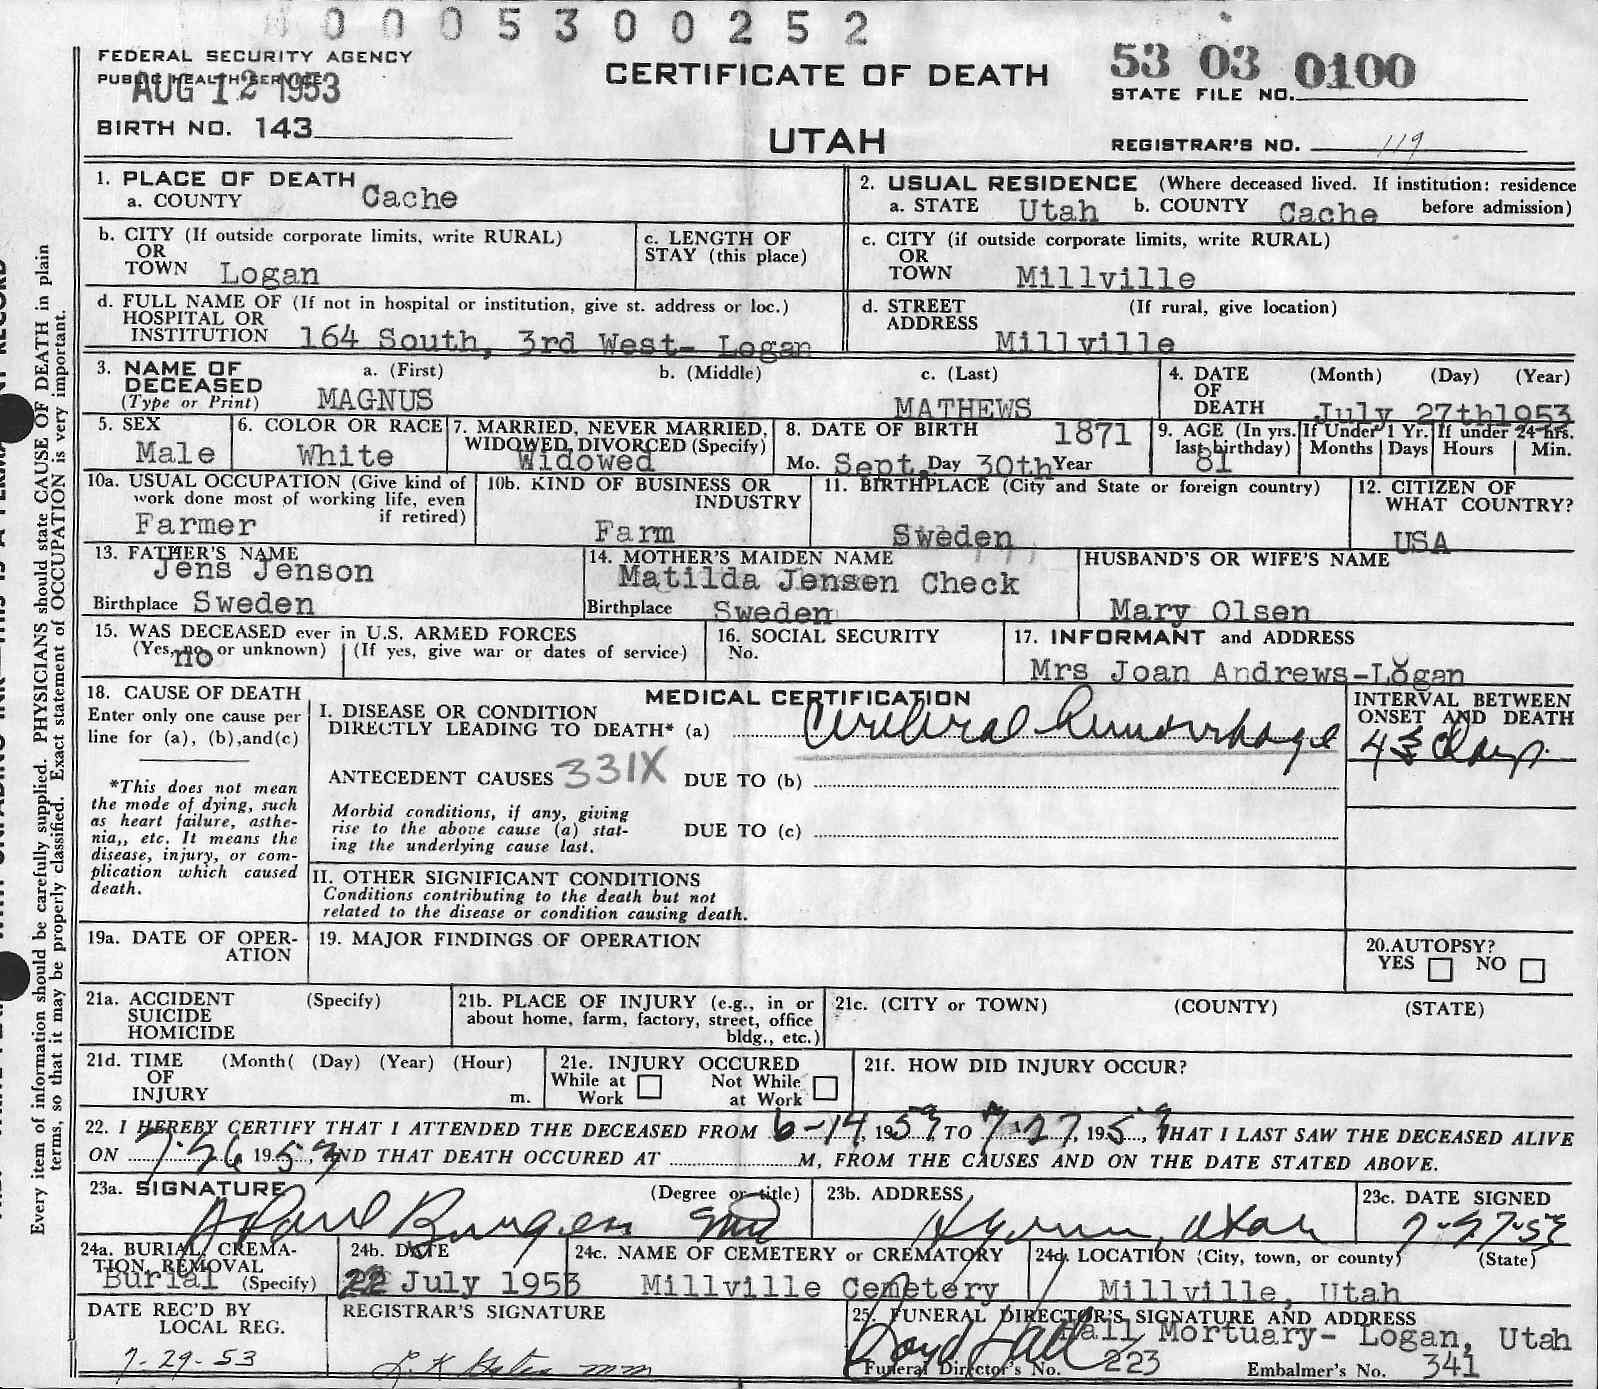 0 0 0 5 3 0 0 2 5 2
FEDERAL SECURITY AGENCY
PUBLIC HEALTH SERVICE
AUG 12 1953
CERTIFICATE OF DEATH
53 03 0100
STATE FILE NO.
BIRTH NO. 143
UTAH
REGISTRAR'S NO. 119
1. PLACE OF DEATH
a. COUNTY Cache
2. USUAL RESIDENCE (Where deceased lived. If institution: residence before admission)
a. STATE Utah b. COUNTY Cache
b. CITY (If outside corporate limits, write RURAL)
OR
TOWN Logan
c. LENGTH OF
STAY (this place)
c. CITY (if outside corporate limits, write RURAL)
OR
TOWN Millville
d. FULL NAME OF (If not in hospital or institution, give st. address or loc.)
HOSPITAL OR
INSTITUTION 164 South, 3rd West- Logan
d. STREET (If rural, give location)
ADDRESS Millville
3. NAME OF
DECEASED
(Type or Print)
a. (First) b. (Middle) c. (Last)
MAGNUS MATHEWS
4. DATE (Month) (Day) (Year)
OF
DEATH July 27th1953
5. SEX
Male
6. COLOR OR RACE
White
7. MARRIED, NEVER MARRIED,
WIDOWED, DIVORCED (Specify)
Widowed
8. DATE OF BIRTH 1871
Mo. Sept. Day 30th Year
9. AGE (In yrs.
last birthday)
81
If Under 1 Yr.
Months Days
If under 24 hrs.
Hours Min.
10a. USUAL OCCUPATION (Give kind of
work done most of working life, even
if retired)
Farmer
10b. KIND OF BUSINESS OR
INDUSTRY
Farm
11. BIRTHPLACE (City and State or foreign country)
Sweden
12. CITIZEN OF
WHAT COUNTRY?
USA
13. FATHER'S NAME
Jens Jenson
Birthplace Sweden
14. MOTHER'S MAIDEN NAME
Matilda Jensen Check
Birthplace Sweden
HUSBAND'S OR WIFE'S NAME
Mary Olsen
15. WAS DECEASED ever in U.S. ARMED FORCES
(Yes, no or unknown) (If yes, give war or dates of service)
no
16. SOCIAL SECURITY
No.
17. INFORMANT and ADDRESS
Mrs Joan Andrews-Logan
18. CAUSE OF DEATH
Enter only one cause per
line for (a), (b),and(c)
*This does not mean
the mode of dying, such
as heart failure, asthe-
nia,, etc. It means the
disease, injury, or com-
plication which caused
death.
MEDICAL CERTIFICATION
I. DISEASE OR CONDITION
DIRECTLY LEADING TO DEATH* (a) Cerebral hemorrhage
ANTECEDENT CAUSES 331X DUE TO (b)
Morbid conditions, if any, giving
rise to the above cause (a) stat-
ing the underlying cause last.
DUE TO (c)
INTERVAL BETWEEN
ONSET AND DEATH
43 days
II. OTHER SIGNIFICANT CONDITIONS
Conditions contributing to the death but not
related to the disease or condition causing death.
19a. DATE OF OPER-
ATION
19. MAJOR FINDINGS OF OPERATION
20.AUTOPSY?
YES NO
21a. ACCIDENT (Specify)
SUICIDE
HOMICIDE
21b. PLACE OF INJURY (e.g., in or
about home, farm, factory, street, office
bldg., etc.)
21c. (CITY or TOWN) (COUNTY) (STATE)
21d. TIME (Month( (Day) (Year) (Hour)
OF
INJURY m.
21e. INJURY OCCURED
While at Work Not While at Work
21f. HOW DID INJURY OCCUR?
22. I HEREBY CERTIFY THAT I ATTENDED THE DECEASED FROM 6-14, 1953, TO 7-27, 1953, THAT I LAST SAW THE DECEASED ALIVE
ON 7-26 1953, AND THAT DEATH OCCURED AT M, FROM THE CAUSES AND ON THE DATE STATED ABOVE.
23a. SIGNATURE (Degree or title)
23b. ADDRESS
Hyrum, Utah
23c. DATE SIGNED
7-27-53
24a. BURIAL, CREMA-
TION, REMOVAL
Burial (Specify)
24b. DATE
July 1953
24c. NAME OF CEMETERY or CREMATORY
Millville Cemetery
24d. LOCATION (City, town, or county) (State)
Millville, Utah
DATE REC'D BY
LOCAL REG.
7-29-53
REGISTRAR'S SIGNATURE
25. FUNERAL DIRECTOR'S SIGNATURE AND ADDRESS
Hall Mortuary- Logan, Utah
Funeral Director's No. 223 Embalmer's No. 341
Every item of information should be carefully supplied. PHYSICIANS should state CAUSE OF DEATH in plain
terms, so that it may be properly classified. Exact statement of OCCUPATION is very important.